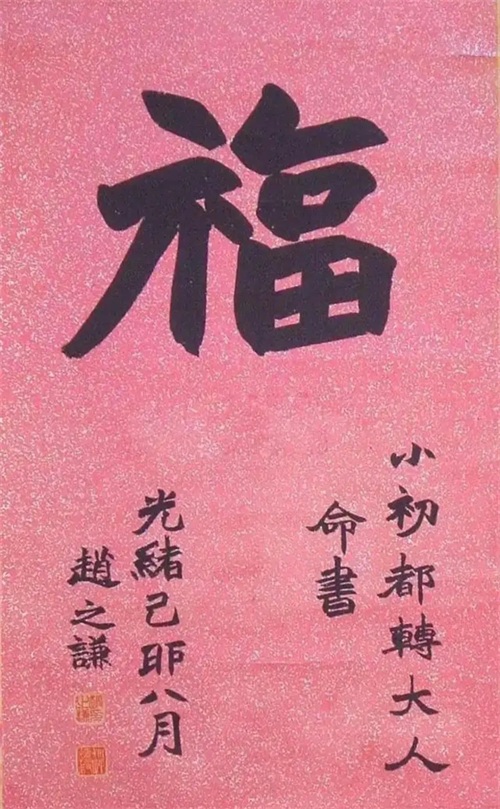 福
小初都轉大人
命書
光緒己卯八月
趙之謙